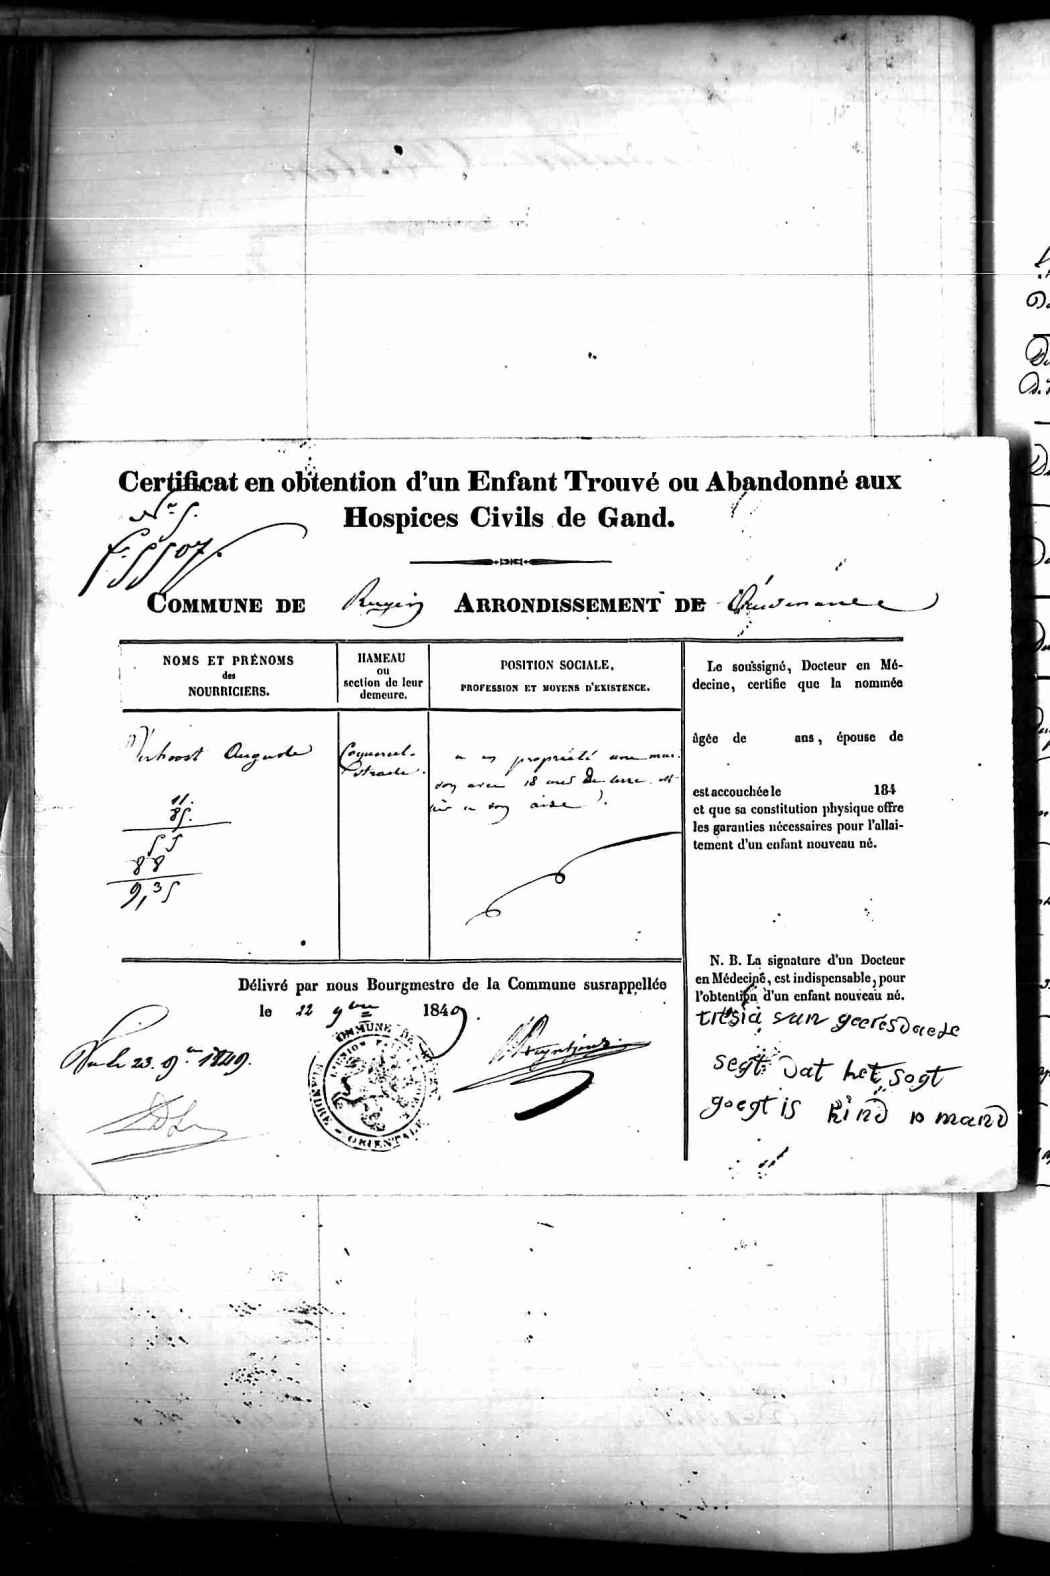 Certificat en obtention d'un Enfant Trouvé ou Abandonné aux
Hospices Civils de Gand.
N° 5.
f° 5507.
COMMUNE DE Ruyen ARRONDISSEMENT DE Audenarde
NOMS ET PRÉNOMS
des
NOURRICIERS.
HAMEAU
ou
section de leur
demeure.
POSITION SOCIALE,
PROFESSION ET MOYENS D'EXISTENCE.
Verhoost Auguste
11.
85.
55
88
9,35
a en propriété une mai-
son avec 18 ares de terre et
à son aise
Le soussigné, Docteur en Mé-
decine, certifie que la nommée
âgée de ans, épouse de
est accouchée le 184
et que sa constitution physique offre
les garanties nécessaires pour l'allai-
tement d'un enfant nouveau né.
N. B. La signature d'un Docteur
en Médecine, est indispensable, pour
l'obtention d'un enfant nouveau né.
tresia van geeresdaele
segt dat het sogt
goegt is kind 10 mand
Délivré par nous Bourgmestre de la Commune susrappellée
le 22 9bre 1849.
23. 9bre 1849.
COMMUNE DE
FLANDRE - ORIENTALE